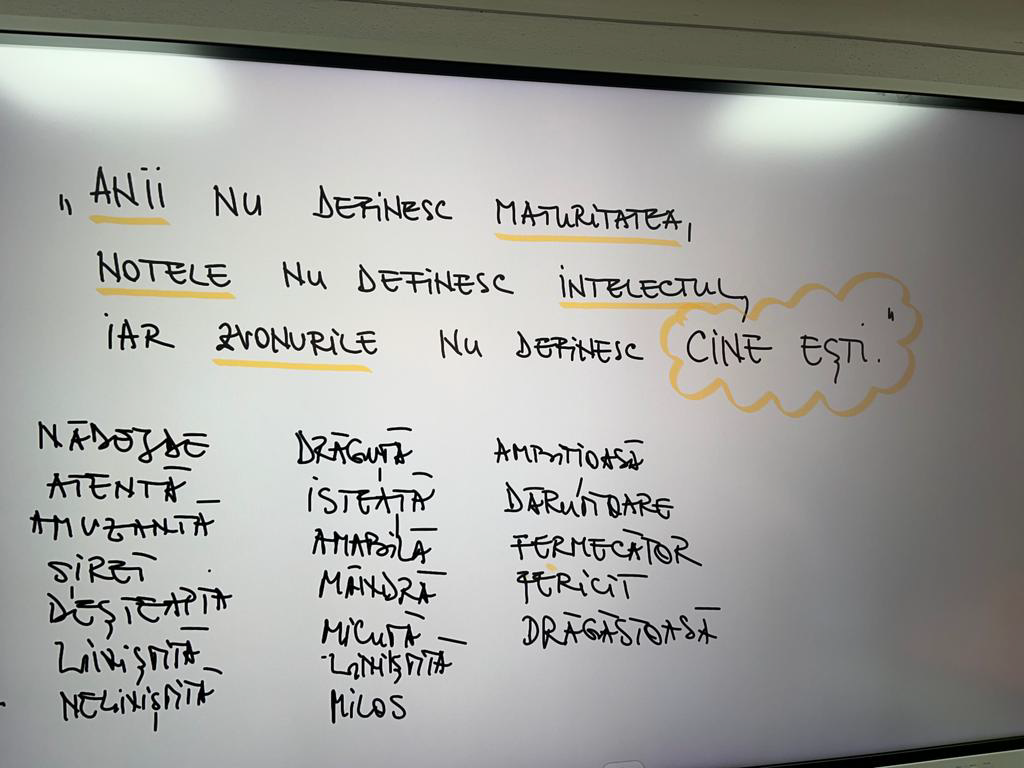 „ ANII NU DEFINESC MATURITATEA,
NOTELE NU DEFINESC INTELECTUL,
IAR ZVONURILE NU DEFINESC CINE EȘTI."
NĂDEJDE
ATENTĂ
AMUZANTĂ
ȘIRET
DEȘTEAPTĂ
LINIȘTITĂ
NELINIȘTITĂ
DRĂGUȚĂ
ISTEAȚĂ
AMABILĂ
MÂNDRĂ
MICUȚĂ
LINIȘTITĂ
MILOS
AMBIȚIOASĂ
DĂRUITOARE
FERMECĂTOR
FERICIT
DRĂGĂSTOASĂ